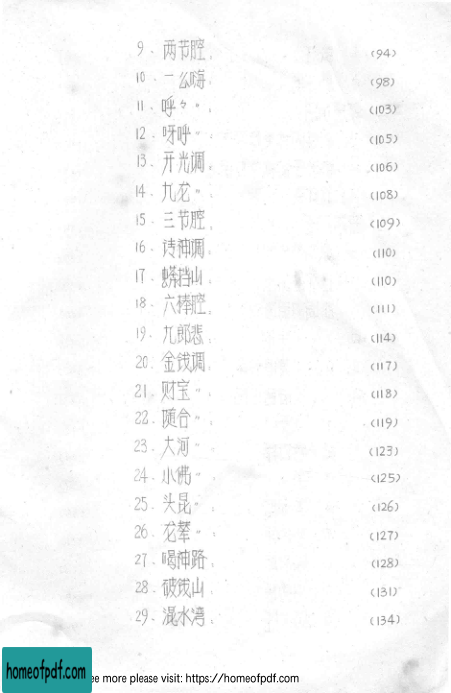 9. 两节腔. (94)
10. 一么嗨. (98)
11. 呼々〃. (103)
12. 呀呼〃. (105)
13. 开光调. (106)
14. 九龙〃. (108)
15. 三节腔. (109)
16. 诗神调. (110)
17. 蟒挡山. (110)
18. 六棒腔. (111)
19. 九郎悲. (114)
20. 金钱调. (117)
21. 财宝〃. (118)
22. 随合〃. (119)
23. 大河〃. (123)
24. 小佛〃. (125)
25. 头昆〃. (126)
26. 龙辇〃. (127)
27. 喝神路. (128)
28. 破钱山. (131)
29. 混水湾. (134)
homeofpdf.com
ee more please visit: https://homeofpdf.com